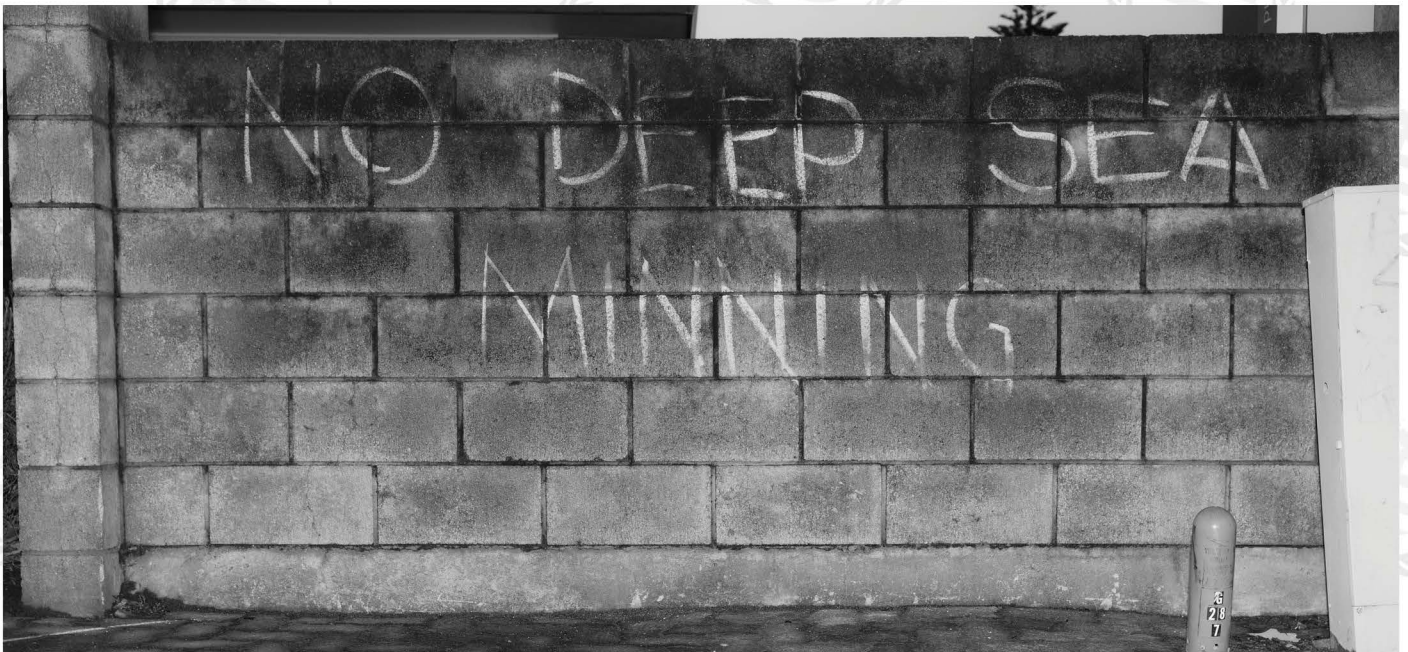 NO DEEP SEA
MINNING
G
28
7